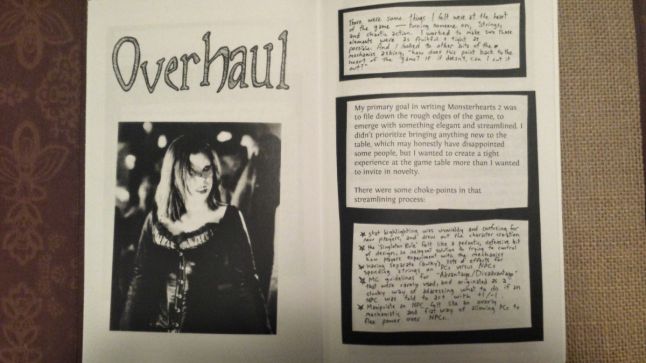 Overhaul
There were some things I felt were at the heart
of the game — turning someone on, Strings,
and chaotic action. I worked to make sure those
elements were as fruitful & tight as
possible. And I looked to other bits of the
mechanics asking, "how does this point back to the
heart of the game? If it doesn't, can I cut it
out?"
My primary goal in writing Monsterhearts 2 was
to file down the rough edges of the game, to
emerge with something elegant and streamlined. I
didn't prioritize bringing anything new to the
table, which may honestly have disappointed
some people, but I wanted to create a tight
experience at the game table more than I wanted
to invite in novelty.
There were some choke-points in that
streamlining process:
★ stat highlighting was unwieldy and confusing for
new players, and drew out the character creation
★ the 'Singleton Rule' felt like a pedantic, defensive bit
of design, an inelegant solution to trying to control
how players experiment with the mechanics
★ having separate (bulky) sets of effects for
spending strings on PCs versus NPCs
★ MC guidelines for "Advantage/Disadvantage"
that were rarely used, and originated as a
clunky way of addressing what to do if an
NPC was told to act with +1/-1
★ Manipulate an NPC felt like an overly
mechanistic and flat way of allowing PCs to
flex power over NPCs.